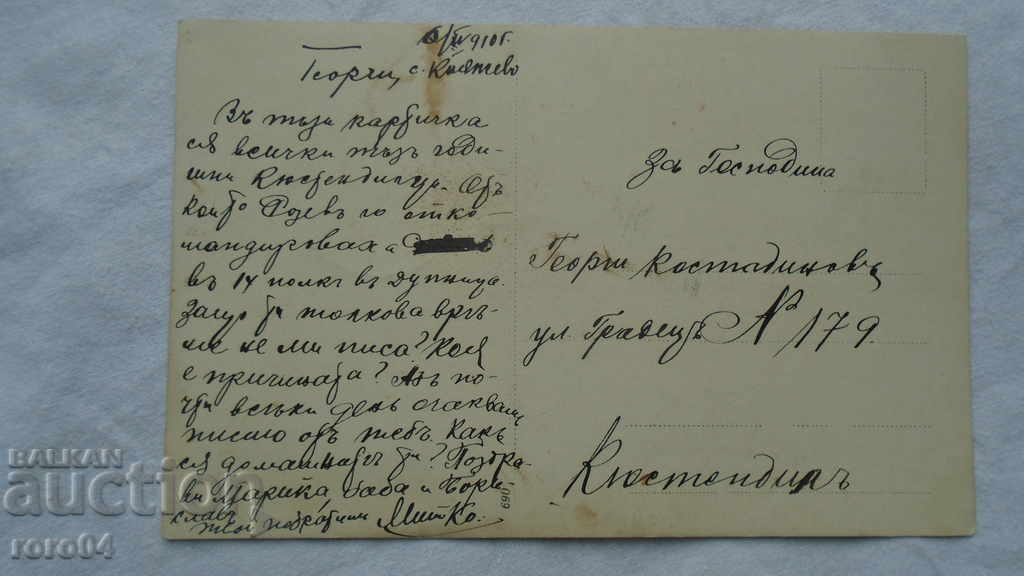 6/II 910 г.
Георги, с. Княжево
Въ тъзи картичка
ся всички тъзъ годи-
шни Кюстендилци. Отъ
които го отко-
мандироваха
въ 14 полкъ въ Дупница.
Защо ти толкова врѣ-
ме не ми писа? Коя
е причината? Азъ по-
чти всѣки день очаквамъ
писмо отъ тебъ. Какъ
ся домашнитѣ ти? Поздра-
ви Марийка, баба и Бори-
славъ
Твой побратимъ Митко.
За Господина
Георги Костадиновъ
ул. Градецъ № 179.
Кюстендилъ
1069
BALKAN
auction
roro04